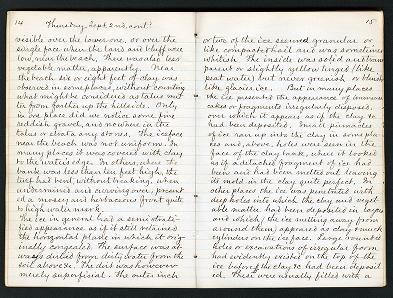 14
Thursday, Sept. 2nd, cont'd
visible over the lower one, or over the
single face when the land and bluff were
low, near the beach. There was also less
vegetable matter, apparently. Near
the beach six or eight feet of clay was
observed in some places, without counting
what might be considered as talus mat-
ter from farther up the hillside. Only
in one place did we notice some fine
reddish gravel, and nowhere in the
talus or strata any stones. The ice face
near the beach was not uniform. In
many places it was covered with clay
to the water's edge. In others, where the
bank was less than ten feet high, the
turf had bent without breaking, when
undermined and curving over, present-
ed a mossy and herbaceous front quite
to high water mark.
The ice in general had a semi strati-
fied appearance as if it still retained
the horizontal plane in which it orig-
inally congealed. The surface was al-
ways dirtied from dirty water from the
soil above &c. The dirt was however
merely superficial. The outer inch
15
or two of the ice seemed granular or
like compacted hail and was sometimes
whitish. The inside was solid and trans-
parent or slightly yellow tinged (like
peat water) but never greenish or bluish
like glacier ice. But in many places
the ice presented the appearance of immense
cakes or fragments irregularly disposed,
over which it appears as if the clay &c
had been deposited. Small pinnacles
of ice ran up into the clay in some plac-
es and, above, holes were seen in the
face of the clay bank, where it looked
as if a detached fragment of ice had
been and had been melted out leaving
its mold in the clay quite perfect. In
other places the ice was penetrated with
deep holes into which the clay and veget-
able matter had been deposited in layers
and which, the ice melting away from
around them, appeared as clay & muck
cylinders on the ice face. Large rounded
holes or excavations of irregular form
had evidently existed on the top of the
ice before the clay &c had been deposit-
ed. These were usually filled with a